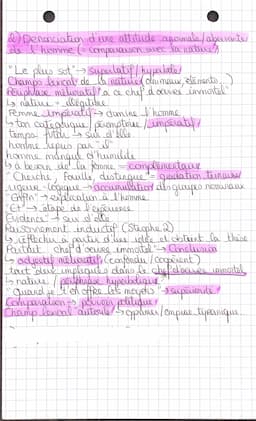 2) Dénonciation d'une attitude anormale/aberrante
de l'homme (= comparaison avec la nature)
"Le plus sot" → superlatif/hyperbole
Champs lexical de la nature (animaux, éléments...)
Périphrase méliorative "à ce chef d'œuvre immortel"
↳ nature = légitime
Femme impératif → domine l'homme
→ ton catégorique/péremptoire/impératif
temps futile → sur d'elle
homme repris par "il"
homme manque d'humilité
→ a besoin de la femme = complémentaire
"Cherche, fouille, distingue" = gradation ternaire
rigueur-logique → accumulation de groupes nominaux
"Enfin" → explication à l'homme
"Et" → étape de l'expérience
Evidence → sur d'elle
Raisonnement inductif (Strophe 2)
↳ réfléchir à partir d'une idée et obtient la thèse
Partout "chef d'œuvre immortel" → Conclusion
↳ adjectif mélioratif (confondus/coopèrent)
tout être impliqués dans le chef d'œuvre immortel
↳ nature/périphrase hyperbolique
"Quand je t'en offre les moyens" → supériorité
Comparaison → pouvoir politique
Champ lexical autorité → opprimer/empire tyrannique